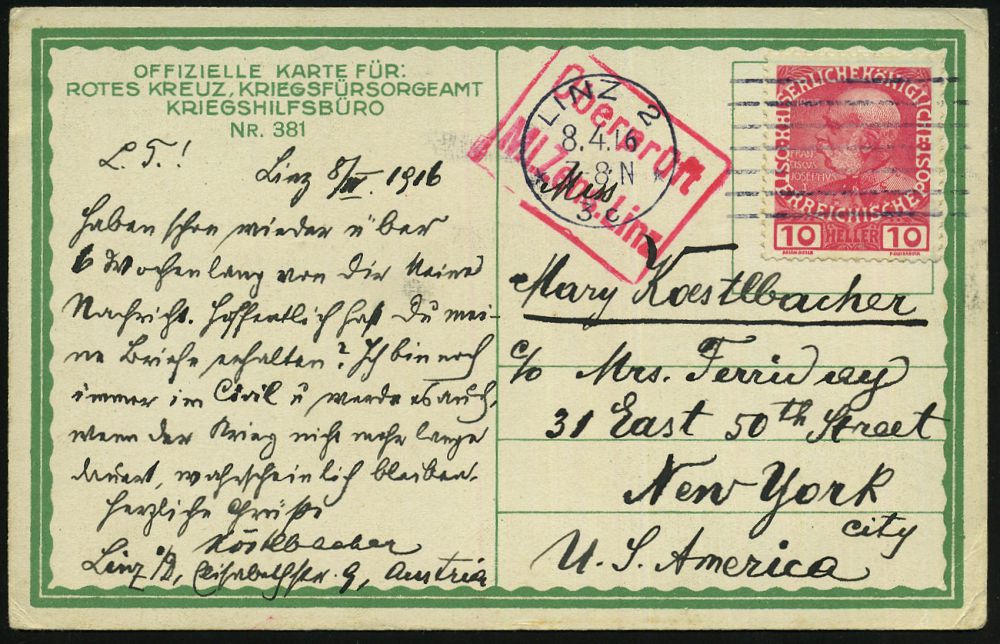 OFFIZIELLE KARTE FÜR:
ROTES KREUZ, KRIEGSFÜRSORGEAMT
KRIEGSHILFSBÜRO
NR. 381
L. T.!
Linz 8/IV. 1916
Haben schon wieder über
6 Wochen lang von Dir keine
Nachricht. Hoffentlich hast Du mei-
ne Briefe erhalten? Ich bin noch
immer im Civil u werde es auch,
wenn der Krieg nicht mehr lange
dauert, wahrscheinlich bleiben.
Herzliche Grüße
Köstlbacher
Linz a/D, Elisabethstr. 9, Austria
LINZ 2
8.4.16
7-8 N
* 3c *
Oberer Oft
Mi.Zens.Linz
KAISERLICHE KÖNIGLICHE
ÖSTERREICHISCHE POST
FRAN
CISCUS
JOSEPHUS I
10 HELLER 10
Miss
Mary Koestlbacher
c/o Mrs. Ferriday
31 East 50th Street
New York
city
U.S. America